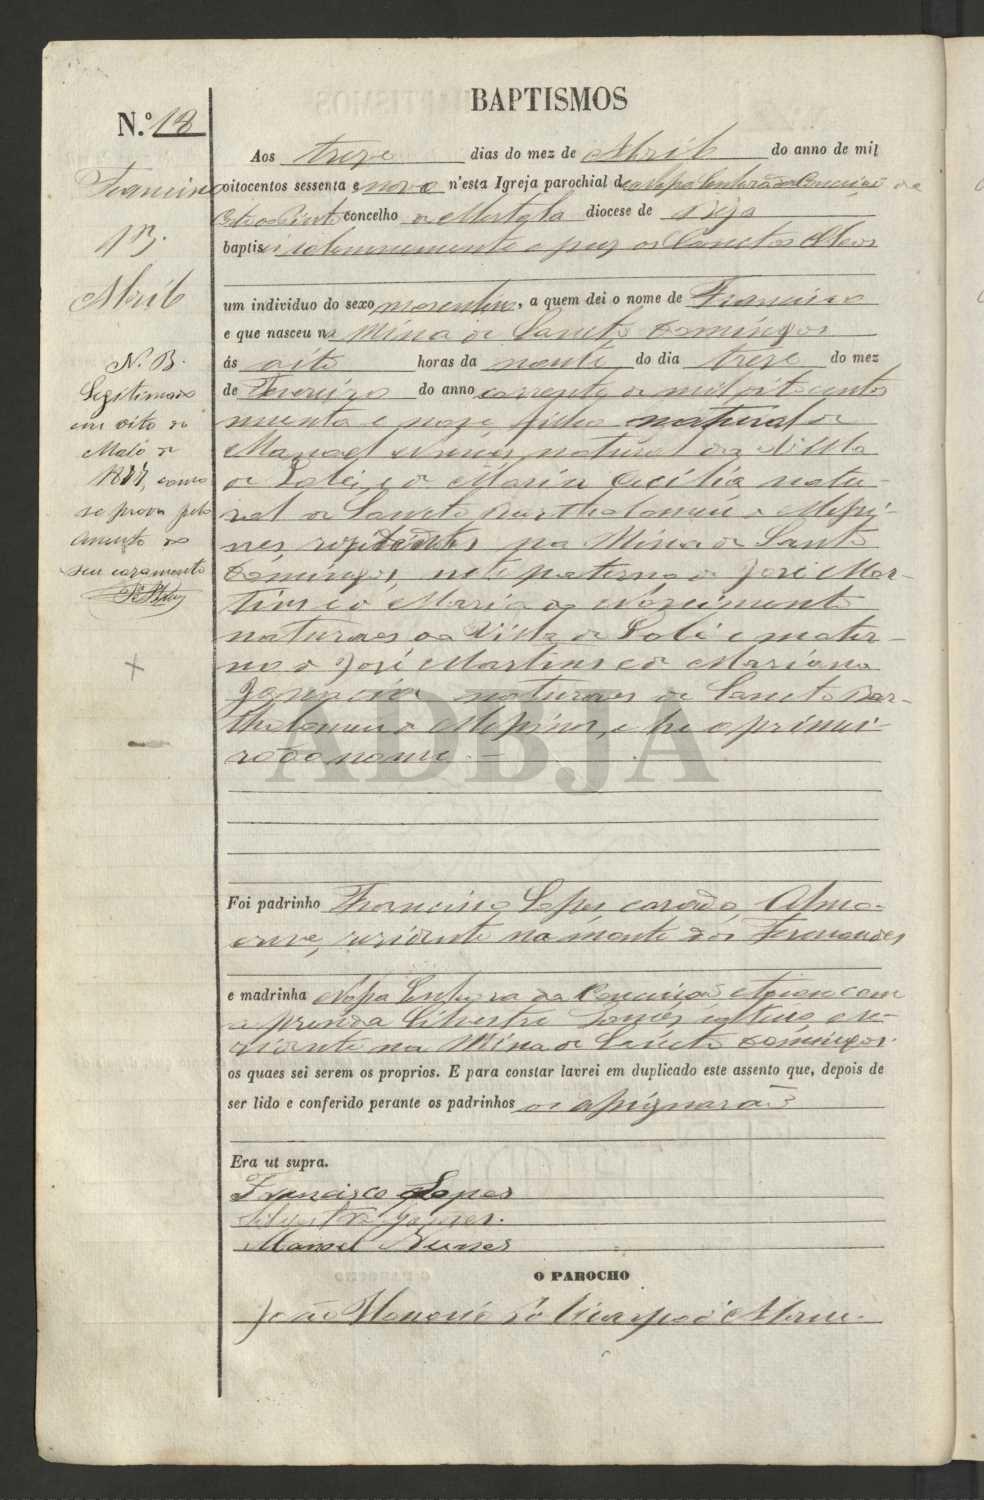 BAPTISMOS
N.º 18
Francisco
13
Abril
N. B.
Legitimado
em oito de
Maio de
1877, como
se prova pelo
assento do
seu casamento
Aos treze dias do mez de Abril do anno de mil
oitocentos sessenta e nove n'esta Igreja parochial de Nossa Senhora da Conceição de
concelho de Mertola diocese de Beja
baptisei solemnemente e puz os Sanctos Oleos
um individuo do sexo masculino, a quem dei o nome de Francisco
e que nasceu na Mina de Sancto Domingos
ás oito horas da noute do dia treze do mez
de Fevereiro do anno corrente de mil oito centos
secenta e nove, filho natural de
Manoel Nunes, natural da Villa
de Lolé, e de Maria Cecilia natu-
ral de Sancto Bartholomeu de Messi-
nes, rezidentes na Mina de Santo
Domingos, neto paterno de José Mar-
tins e de Maria do Nascimento
naturaes da Villa de Lolé e mater-
no de José Martins e de Mariana
naturaes de Sancto Bar-
tholomeu de Messines, e he o primei-
ro do nome. =
ADBJA
Foi padrinho Francisco Lopes casado Almo-
creve, rezidente no monte dos Fernandes
e madrinha Nossa Senhora da Conceição, tocou com
a prenda Silvestre Gomes, e re-
zidente na Mina de Sancto Domingos.
os quaes sei serem os proprios. E para constar lavrei em duplicado este assento que, depois de
ser lido e conferido perante os padrinhos os assignarão
Era ut supra.
Francisco Lopes
Silvestre Gomes.
Manoel Nunes
O PAROCHO
João